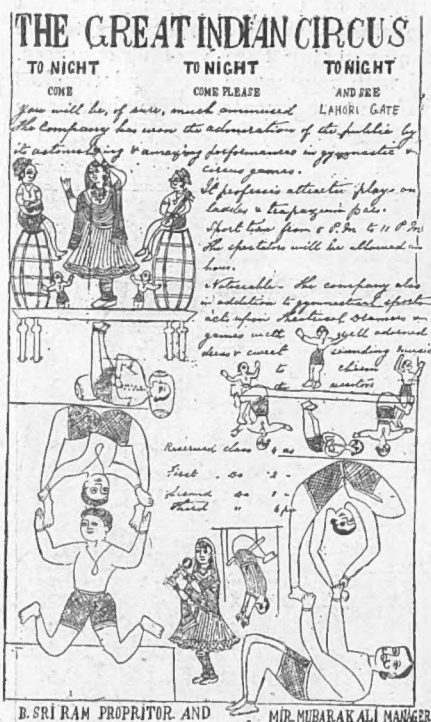 THE GREAT INDIAN CIRCUS
TO NIGHT TO NIGHT TO NIGHT
COME COME PLEASE AND SEE
you will be, of sure, much ammused LAHORI GATE
The Company has won the admiration of the public by
its astonishing & amazing performances in gymnastic &
circus games.
It professis attractiv plays on
ladder & trapazium bars.
Sport time from 8 P.M to 11 P.M
The spectators will be allowed an
hour.
Noticeable - The company also
in addition to gymnastical sports
acts upon theatrical Dramas &
games with well adorned
dress & sweet sounding music
to
the
Reserved class 4 as
First do 2
Second do
Third " 
B. SRI RAM PROPRITOR AND MIR. MUBARAK ALI MANAGER